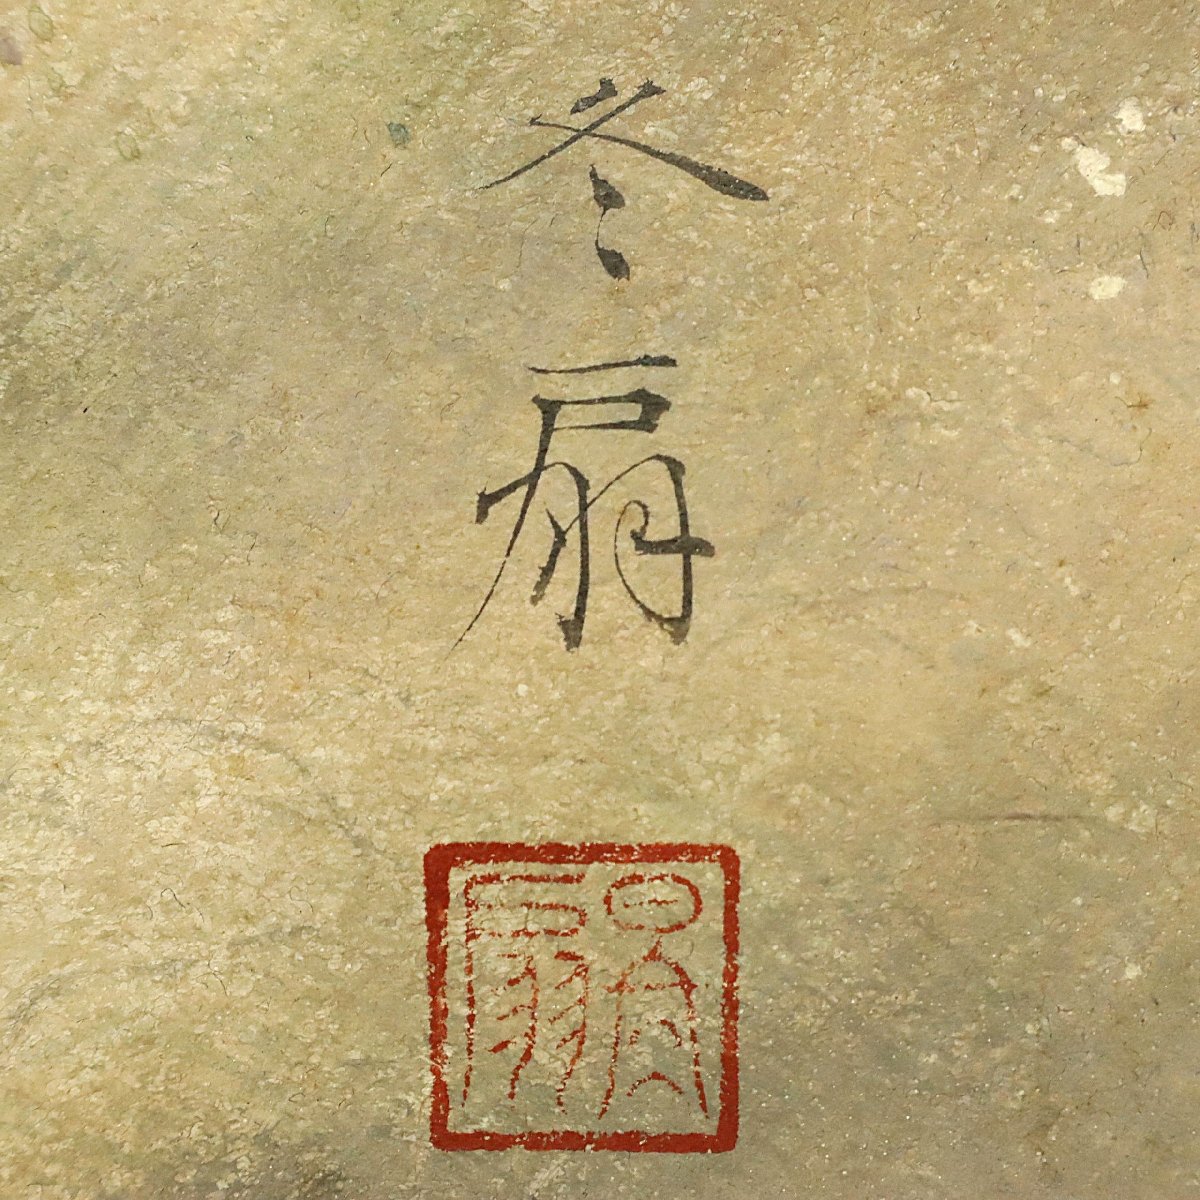 冬扇
冬扇